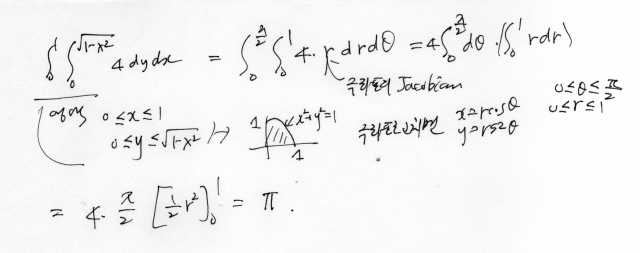 ∫₀¹ ∫₀^√(1-x²) 4 dy dx = ∫₀^(π/2) ∫₀¹ 4·r dr dθ = 4∫₀^(π/2) dθ · (∫₀¹ r dr)
극좌표의 Jacobian
영역 0≤x≤1
0≤y≤√(1-x²) 1 x²+y²=1 1
극좌표로 고치면 x=rcosθ 0≤θ≤π/2
y=rsinθ 0≤r≤1
= 4·π/2 [½r²]₀¹ = π.